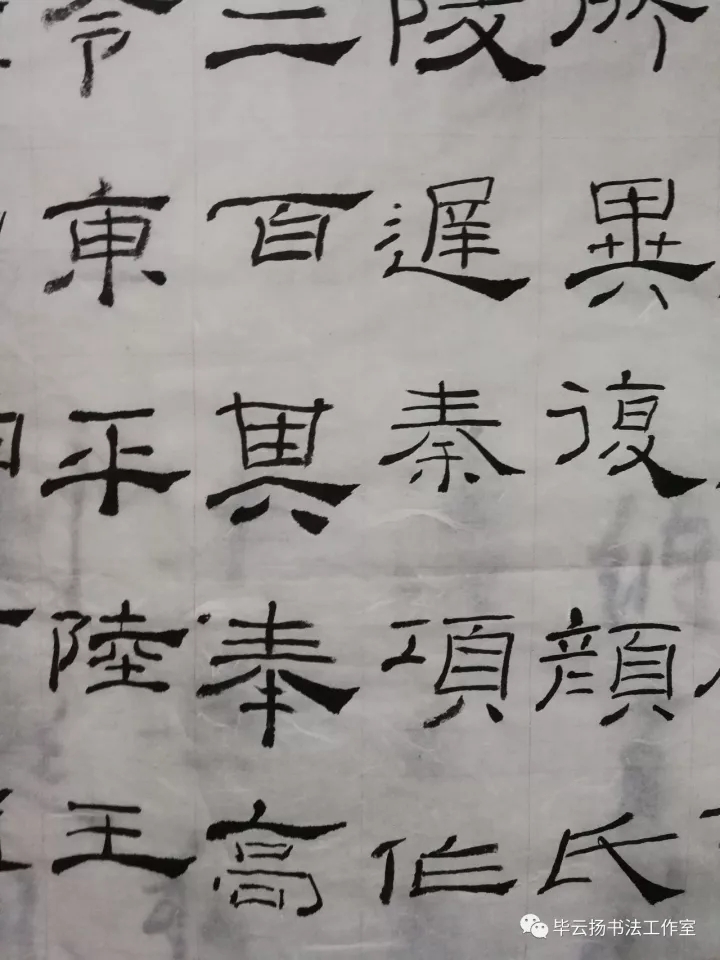 所異復顏氏
陵遲秦項作
二百其奉高
令東平陸王
毕云扬书法工作室